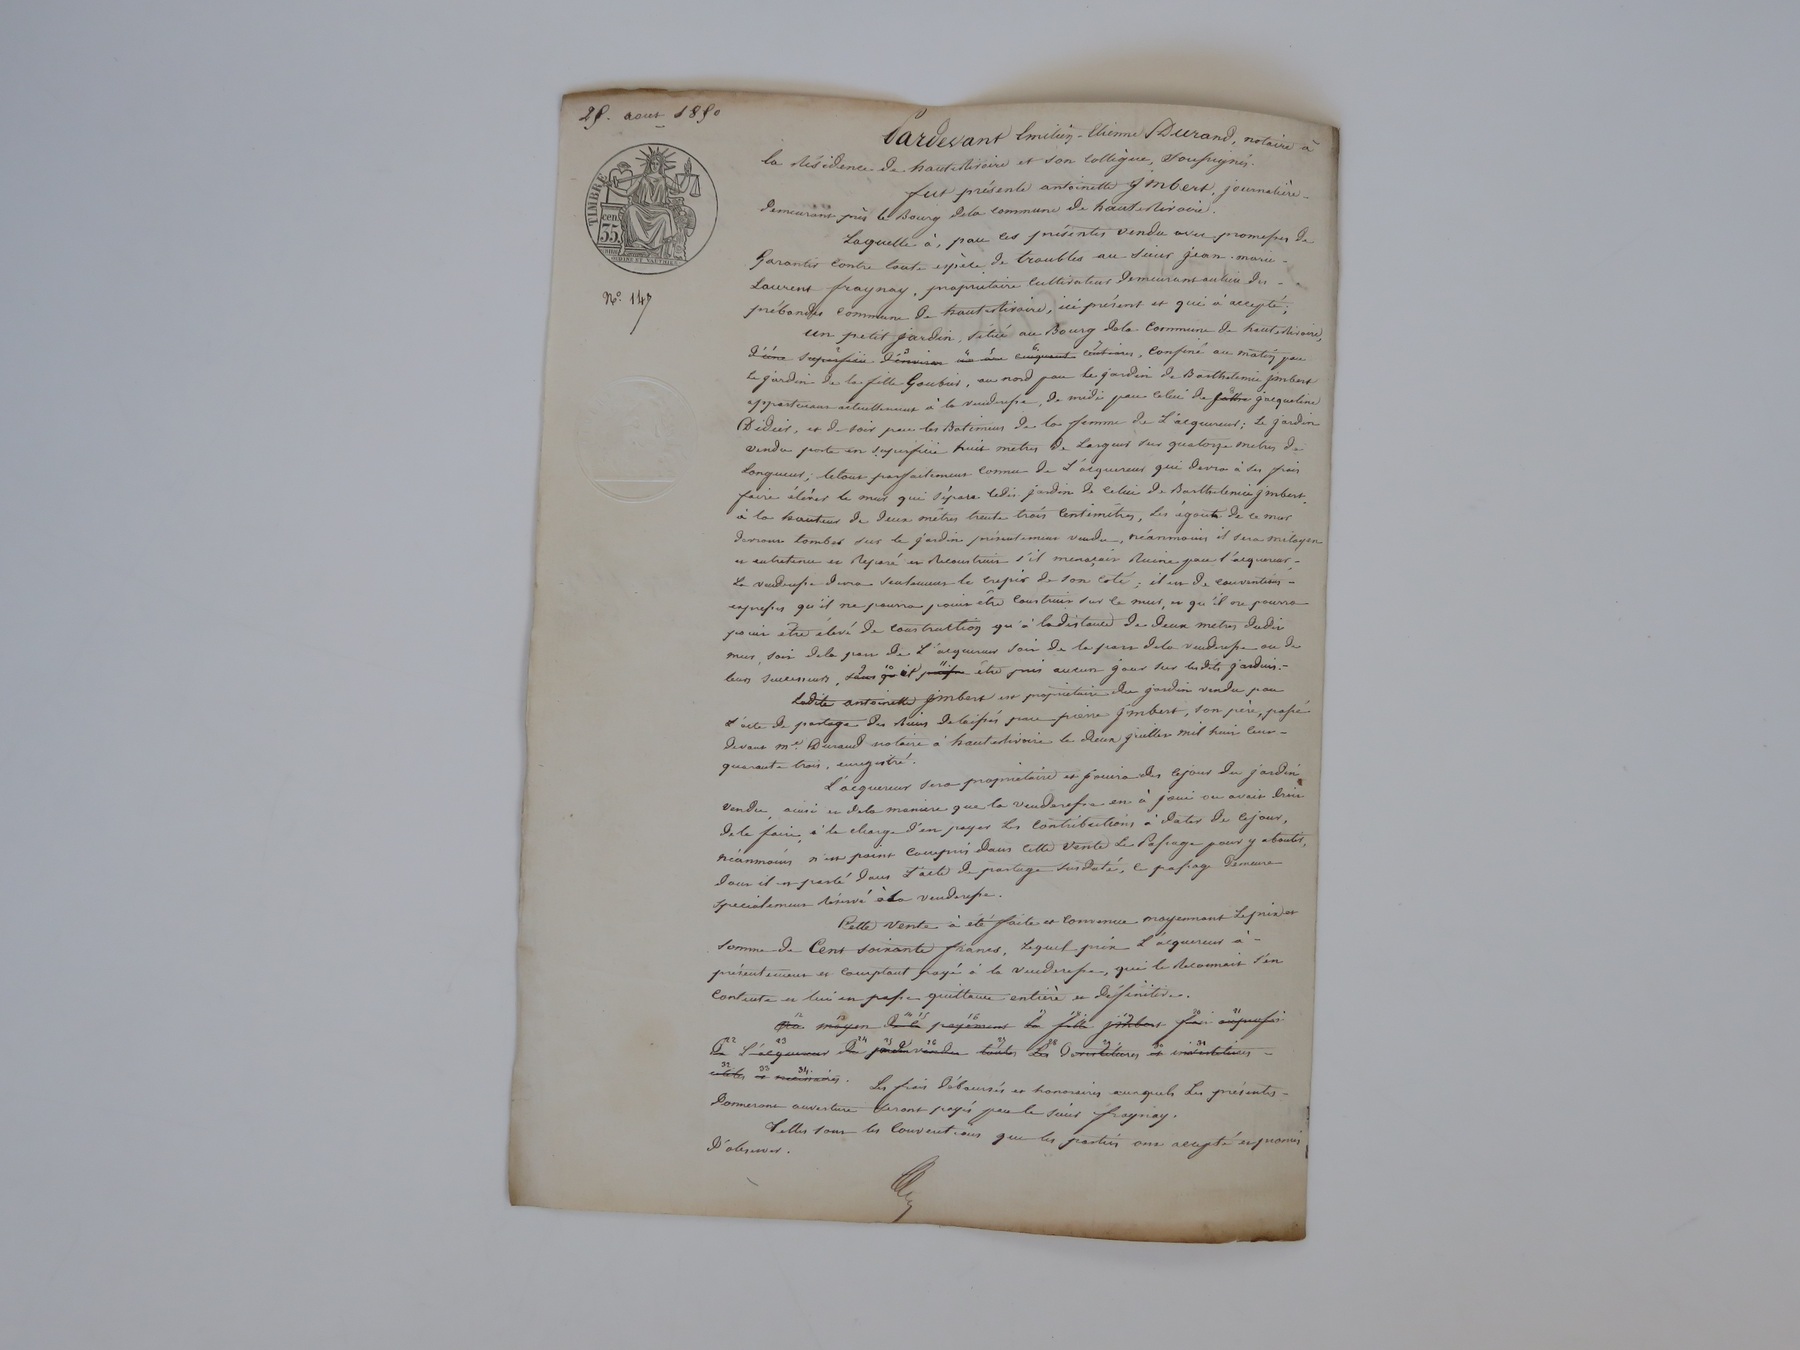 25. aout 1850
TIMBRE
cen.
35
N.º 147
Pardevant Emilien-Etienne Durand, notaire à
la Résidence de hauterivoire et son collègue, soussignés.
fut présente antoinette jmbert, journalière-
demeurant près le Bourg dela commune de hauterivoire.
Laquelle à, par ces présentes vendu avec promesses de
Garantir contre toute espèce de troubles au sieur jean-marie-
Laurent fraynay, propriétaire cultivateur demeurant au lieu des-
prébandes commune de hauterivoire, ici présent et qui à accepté;
un petit jardin, situé au Bourg dela commune de hauterivoire,
d'une superficie d'environ un are cinquante centiares, confiné au matin par
le jardin de la fille Goubier, au nord par le jardin de Barthelemie jmbert
appartenant actuellement à la venderesse, de midi par celui de jacqueline
Didier, et de soir par les Batimens de la femme de L'acquereur; Le jardin
vendu porte en superficie huit metres de Largeur sur quatorze metres de
Longueur; letout parfaitement connu de L'acquereur qui devra à ses frais
faire élever le mur qui sépare ledit jardin de celui de Barthelemie jmbert
à la hauteur de deux mètres trente trois centimètres, Les égouts de ce mur
devront tomber sur le jardin présentement vendu, néanmoins il sera mitoyen
et entretenu et Réparé et Reconstruit s'il menaçait Ruine par l'acquereur,-
La venderesse devra seulement le crepir de son coté; il est de conventions-
expresses qu'il ne pourra point être construit sur ce mur, et qu'il ne pourra
point être élevé de construction qu'à la distance de deux metres dudit
mur, soit dela part de L'acquereur soit de la part dela venderesse ou de
leurs successeurs, sans qu'il puisse être pris aucun jour sur lesdits jardins.-
Ladite antoinette jmbert est propriétaire du jardin vendu par
L'acte de partage des Biens delaissés par pierre jmbert, son père, passé
devant mᵉ Durand notaire à hauterivoire le deux juillet mil huit cent-
quarante trois, enregistré.
L'acquereur sera propriétaire et jouira dès cejour du jardin
vendu, ainsi et dela manière que la venderesse en à joui ou avait droit
de le faire, à la charge d'en payer Les contributions à dater de cejour,
néanmoins n'est point compris dans cette vente Le Passage pour y aboutir,
dont il est parlé dans L'acte de partage susdaté, ce passage demeure
specialement réservé à la venderesse.
Cette vente à été faite et convenue moyennant Leprix et
somme de Cent soixante francs, Lequel prix L'acquereur à-
présentement et comptant payé à la venderesse, qui le Reconnait s'en
contente et lui en passe quittance entière et définitive.
Au moyen de ce payement la fille jmbert fait au profit
de L'acquereur du jardin vendu toutes Les devestitures et investitures-
utiles et necessaires. Les frais déboursés et honoraires auxquels Les présentes-
donneront ouverture seront payés par le sieur fraynay.
Telles sont les conventions que les parties ont accepté et promis
d'observer.